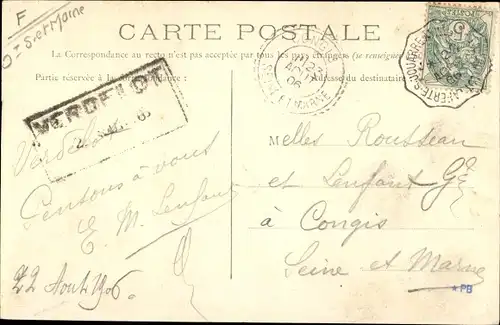 F
S-et Marne
CARTE POSTALE
La Correspondance au recto n'est pas acceptée par tous les pays étrangers (se renseigner
Partie réservée à la correspondance:
Adresse du destinataire
CONGIS
AOUT
06
ET-MARNE
LA FERTE-S-JOUARRE A
VERDELOT
Verdelot
Pensons à vous
E. M. Lenfant
22 Aout 1906.
Melles Rousseau
et Lenfant Gé
à Congis
Seine et Marne
*PB